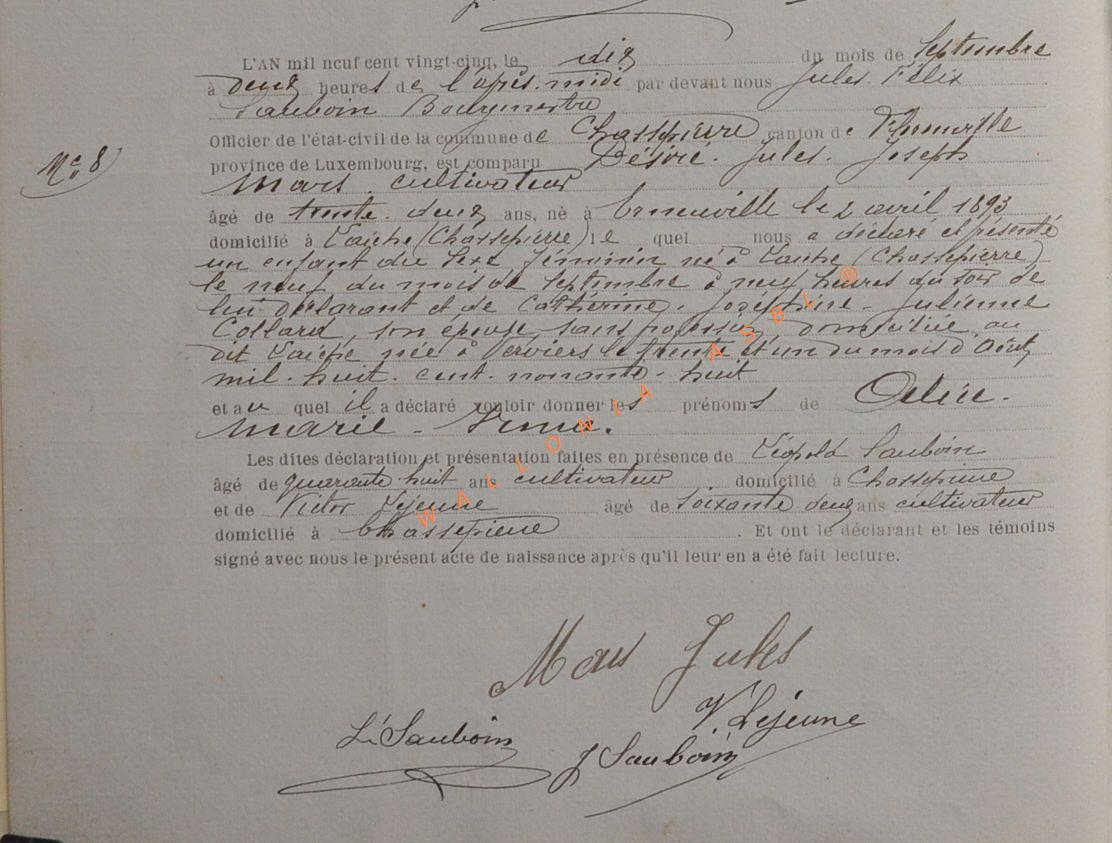 L'AN mil neuf cent vingt-cinq, le dix du mois de Septembre
à deux heures de l'après-midi par devant nous Jules Félix
Sauboin Bourgmestre
Officier de l'état-civil de la commune de Chassepierre canton de
province de Luxembourg, est comparu Désiré. Jules. Joseph
Nº 8
Mars. cultivateur
âgé de trente-deux ans, né à le 2 avril 1893
domicilié à Laiche (Chassepierre) le quel nous a déclaré et présenté
un enfant du sexe féminin né à Laiche (Chassepierre)
le neuf du mois de septembre à neuf heures du soir de
lui déclarant et de Cathérine. Joséphine. Julienne
Collard, son épouse, sans profession domiciliée au
dit Laiche née à Verviers le trente et un du mois d'Août
mil. huit. cent. nonante. huit
et au quel il a déclaré vouloir donner les prénoms de
Marie -
Les dites déclaration et présentation faites en présence de Léopold Sauboin
âgé de quarante huit ans cultivateur domicilié à Chassepierre
et de Victor Lejeune âgé de soixante deux ans cultivateur
domicilié à Chassepierre. Et ont le déclarant et les témoins
signé avec nous le présent acte de naissance après qu'il leur en a été fait lecture.
Mars Jules
V. Lejeune
L. Sauboin
J Sauboin
WALLONIA ASBL ®